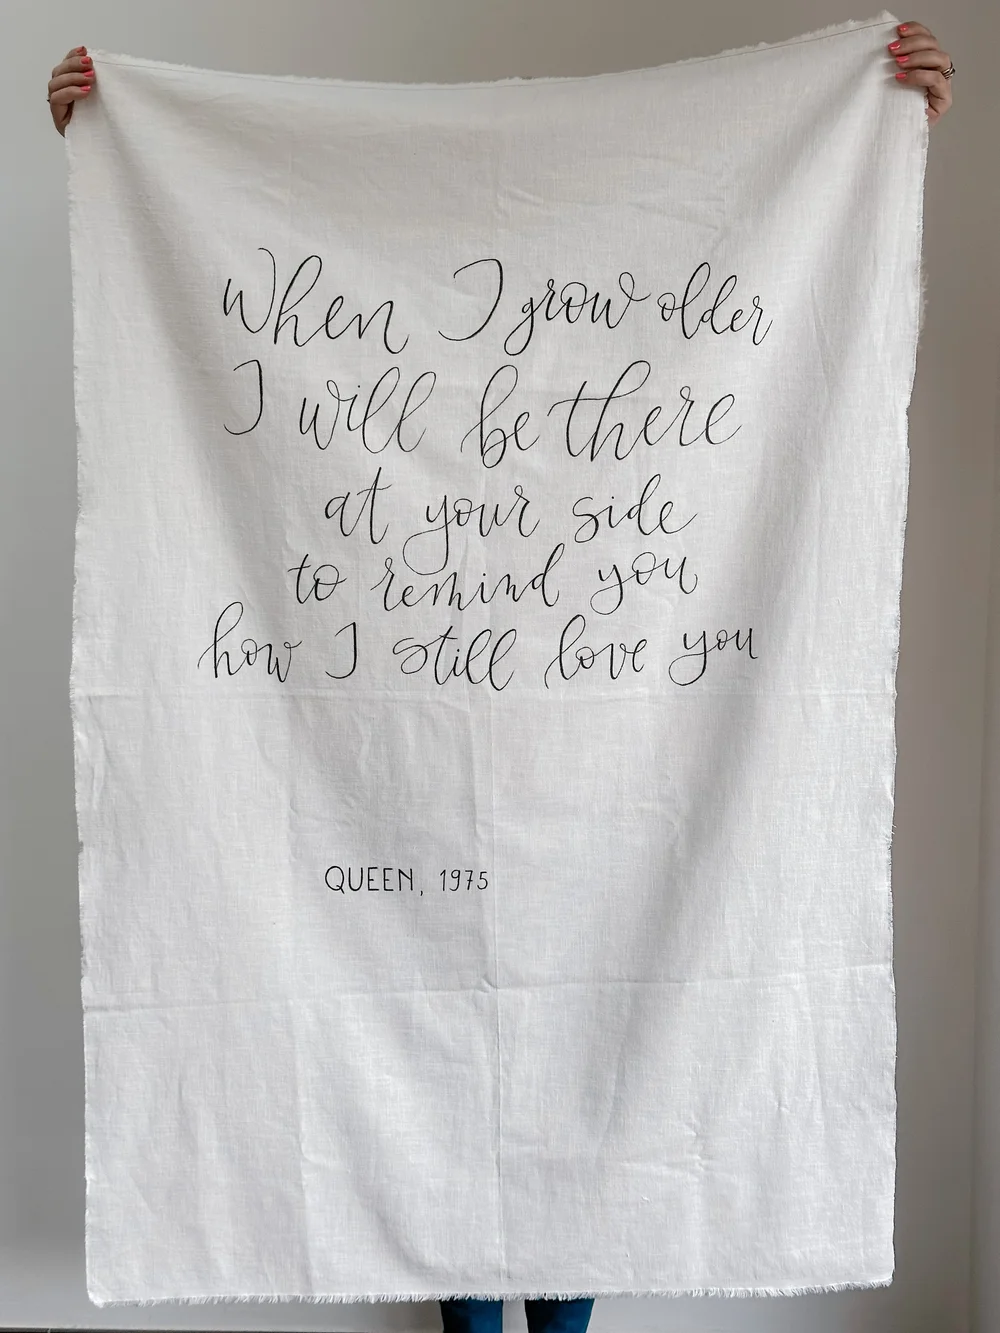 When I grow older
I will be there
at your side
to remind you
how I still love you
QUEEN, 1975